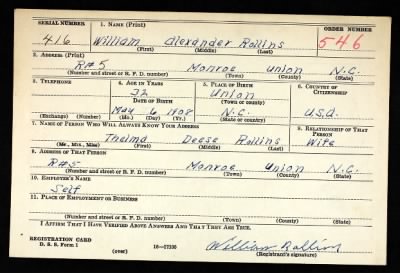 SERIAL NUMBER 1. NAME (Print) ORDER NUMBER
416 William Alexander Rollins 546
(First) (Middle) (Last)
2. ADDRESS (Print)
R#5 Monroe Union N.C.
(Number and street or R. F. D. number) (Town) (County) (State)
3. TELEPHONE 4. AGE IN YEARS 5. PLACE OF BIRTH 6. COUNTRY OF CITIZENSHIP
32 Union
DATE OF BIRTH (Town or county)
May 6 1908 N.C. U.S.A.
(Exchange) (Number) (Mo.) (Day) (Yr.) (State or country)
7. NAME OF PERSON WHO WILL ALWAYS KNOW YOUR ADDRESS 8. RELATIONSHIP OF THAT PERSON
Thelma Deese Rollins Wife
(Mr., Mrs., Miss) (First) (Middle) (Last)
9. ADDRESS OF THAT PERSON
R#5 Monroe Union N.C.
(Number and street or R. F. D. number) (Town) (County) (State)
10. EMPLOYER'S NAME
Self
11. PLACE OF EMPLOYMENT OR BUSINESS
(Number and street or R. F. D. number) (Town) (County) (State)
I AFFIRM THAT I HAVE VERIFIED ABOVE ANSWERS AND THAT THEY ARE TRUE.
REGISTRATION CARD
D. S. S. Form 1 (over) 16—17105 William Rollins
(Registrant's signature)